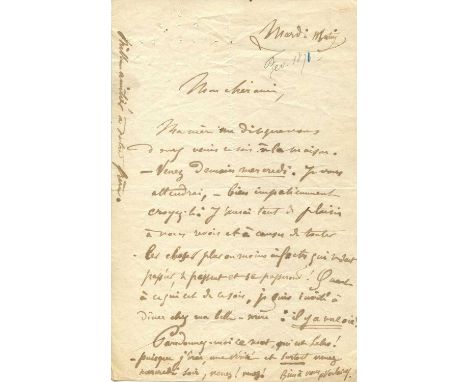 Mardi Matin
Fev. 1871
Mon cher ami,
Ma mère me dit que vous
devez venir ce soir à la maison.
– Venez demain mercredi. Je vous
attendrai, – bien impatiemment
croyez-le. J'aurai tant de plaisir
à vous revoir et à causer de toutes
les choses plus ou moins infectes qui
passé, se passent et se passeront! Quant
à ce qui est de ce soir, je suis invité à
dîner chez ma belle-mère: il y a
Pardonnez-moi ce mot, qui est bête!
puisque j'ai et surtout venez
mercredi soir, venez! venez! Bien à vous
Mille amitiés à votre